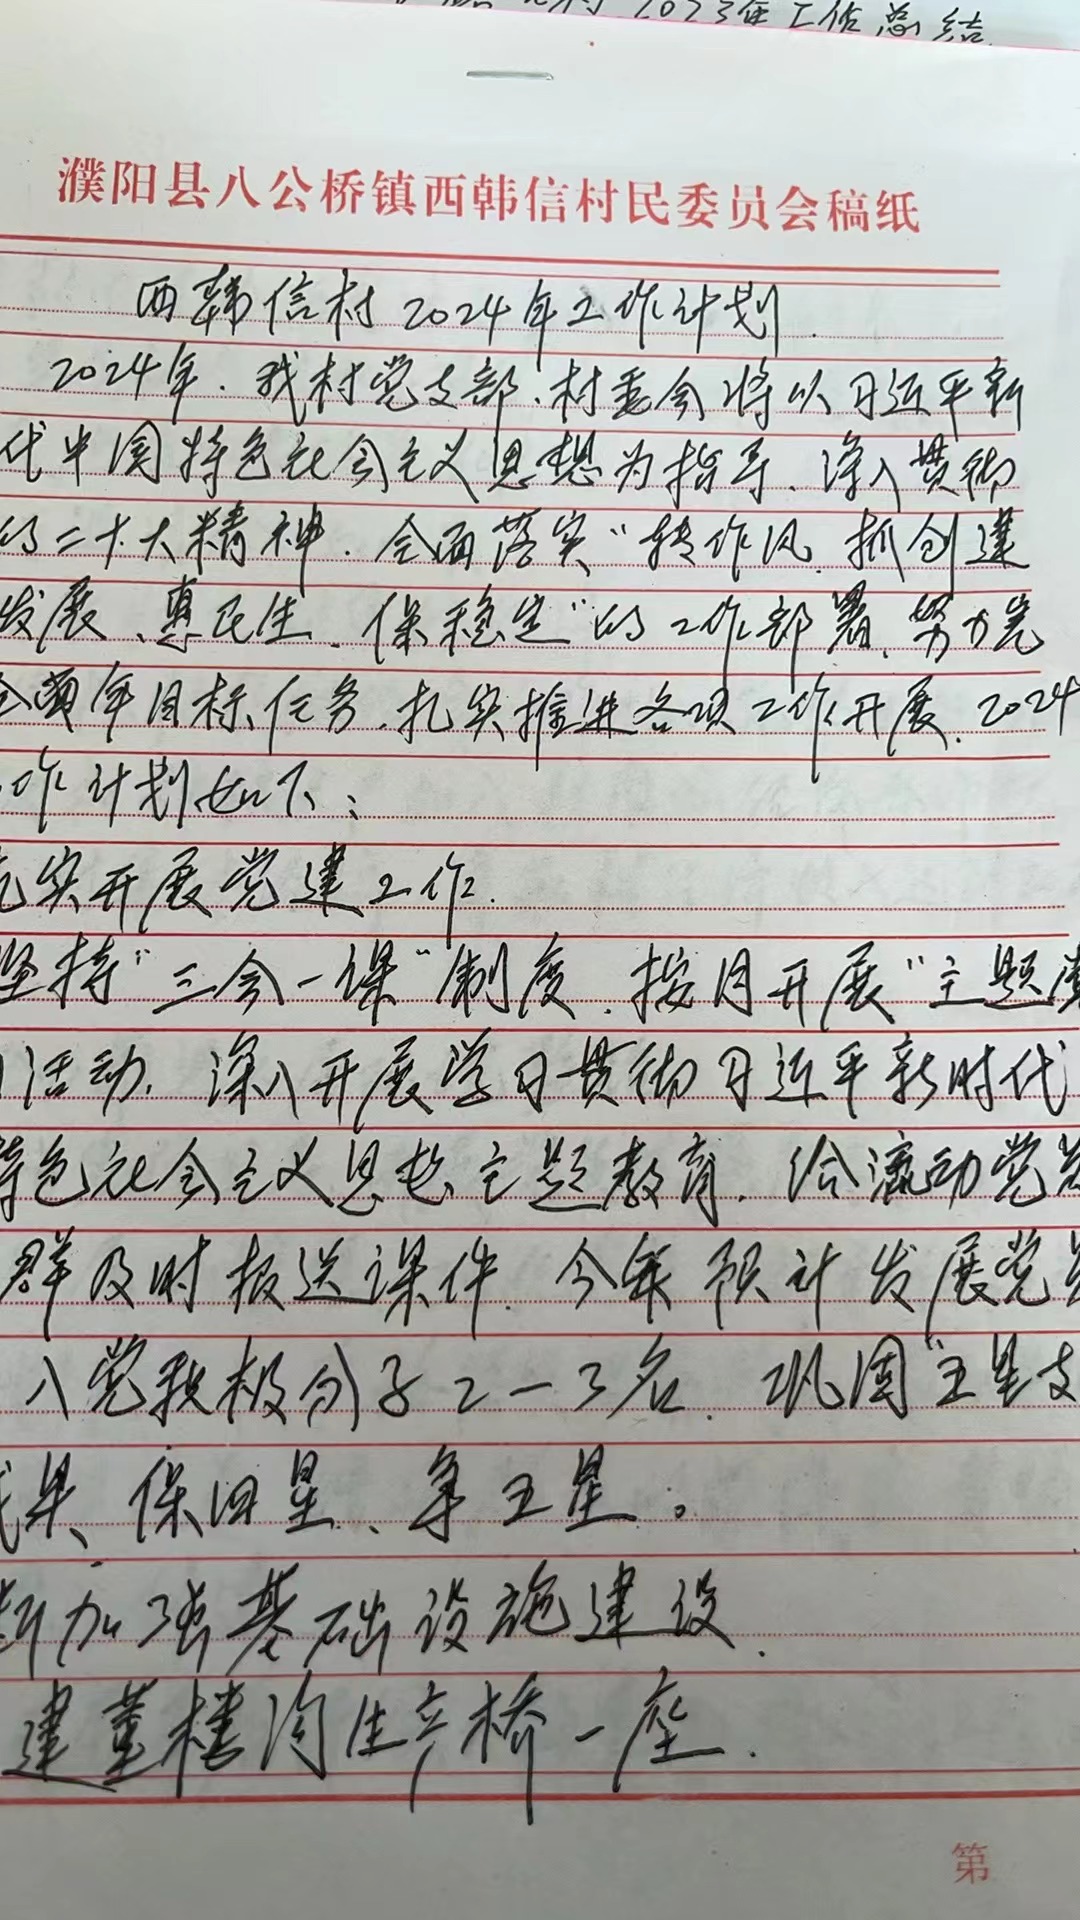 2023年工作总结
濮阳县八公桥镇西韩信村民委员会稿纸
西韩信村2024年工作计划
2024年、我村党支部、村委会将以习近平新
代中国特色社会主义思想为指导、深入贯彻
的二十大精神、全面落实“转作风、抓创建
发展、惠民生、保稳定”的工作部署、努力完
全年目标任务、扎实推进各项工作开展、2024
作计划如下:
实开展党建工作.
坚持“三会一课”制度、按月开展“主题党
活动、深入开展学习贯彻习近平新时代
特色社会主义思想主题教育、给流动党员
群及时报送课件、今年预计发展党员
入党积极分子2一3名、巩固“五星支
成果、保四星、争五星。
加强基础设施建设.
建董楼沟生产桥一座.
第